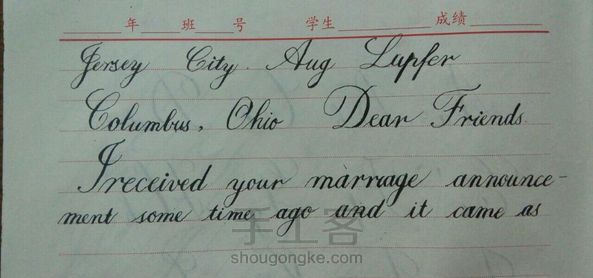 年 班 号 学生 成绩
Jersey City. Aug Lupfer
Columbus, Ohio Dear Friends
I received your marriage announce-
ment some time ago and it came as
手工客
shougongke.com